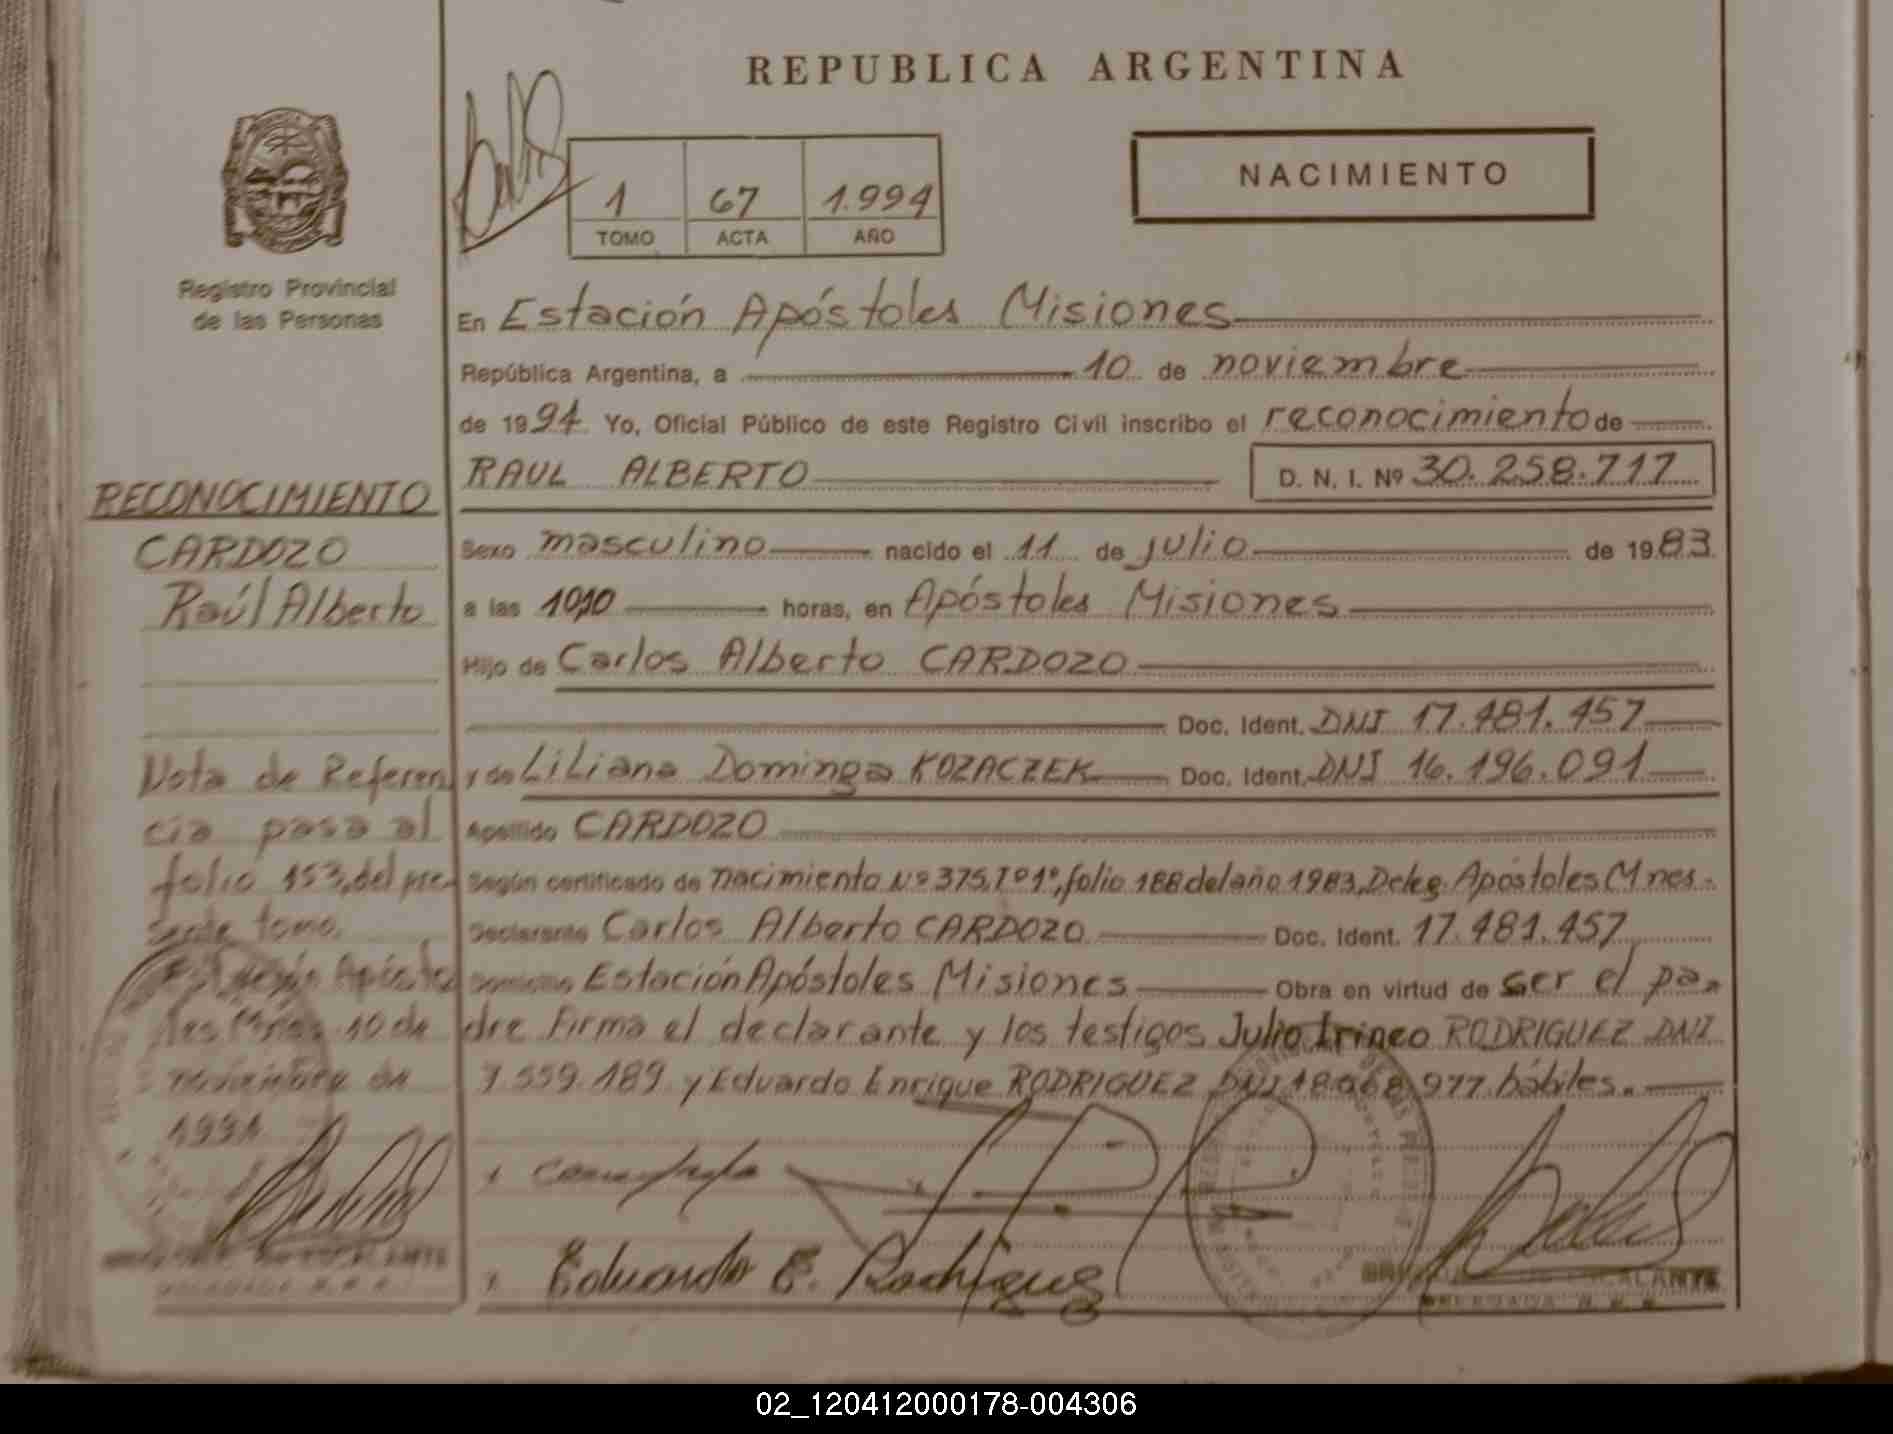 REPUBLICA ARGENTINA
NACIMIENTO
1 67 1.994
TOMO ACTA AÑO
Registro Provincial
de las Personas
En Estación Apóstoles Misiones
República Argentina, a 10 de noviembre
de 1994 Yo, Oficial Público de este Registro Civil inscribo el reconocimiento de
RAUL ALBERTO D. N. I. Nº 30.258.717
Sexo masculino nacido el 11 de julio de 1983
a las 1010 horas, en Apóstoles Misiones
Hijo de Carlos Alberto CARDOZO
Doc. Ident. DNI 17.481.457
y de Liliana Dominga KOZACZEK Doc. Ident. DNI 16.196.091
Apellido CARDOZO
Según certificado de nacimiento Nº 375, Tº 1º, folio 188 del año 1983, Deleg. Apóstoles Mnes.-
Declarante Carlos Alberto CARDOZO Doc. Ident. 17.481.457
Domicilio Estación Apóstoles Misiones Obra en virtud de ser el pa-
dre Firma el declarante y los testigos Julio Irineo RODRIGUEZ DNI
7.559.189 y Eduardo Enrique RODRIGUEZ DNI 18.068.977 hábiles.-
Eduardo E. Rodriguez
RECONOCIMIENTO
CARDOZO
Raúl Alberto
Nota de Referen
cia pasa al
folio 153, del pre-
sente tomo.
Estación Apósto
les Mnes. 10 de
noviembre de
1994
02_120412000178-004306